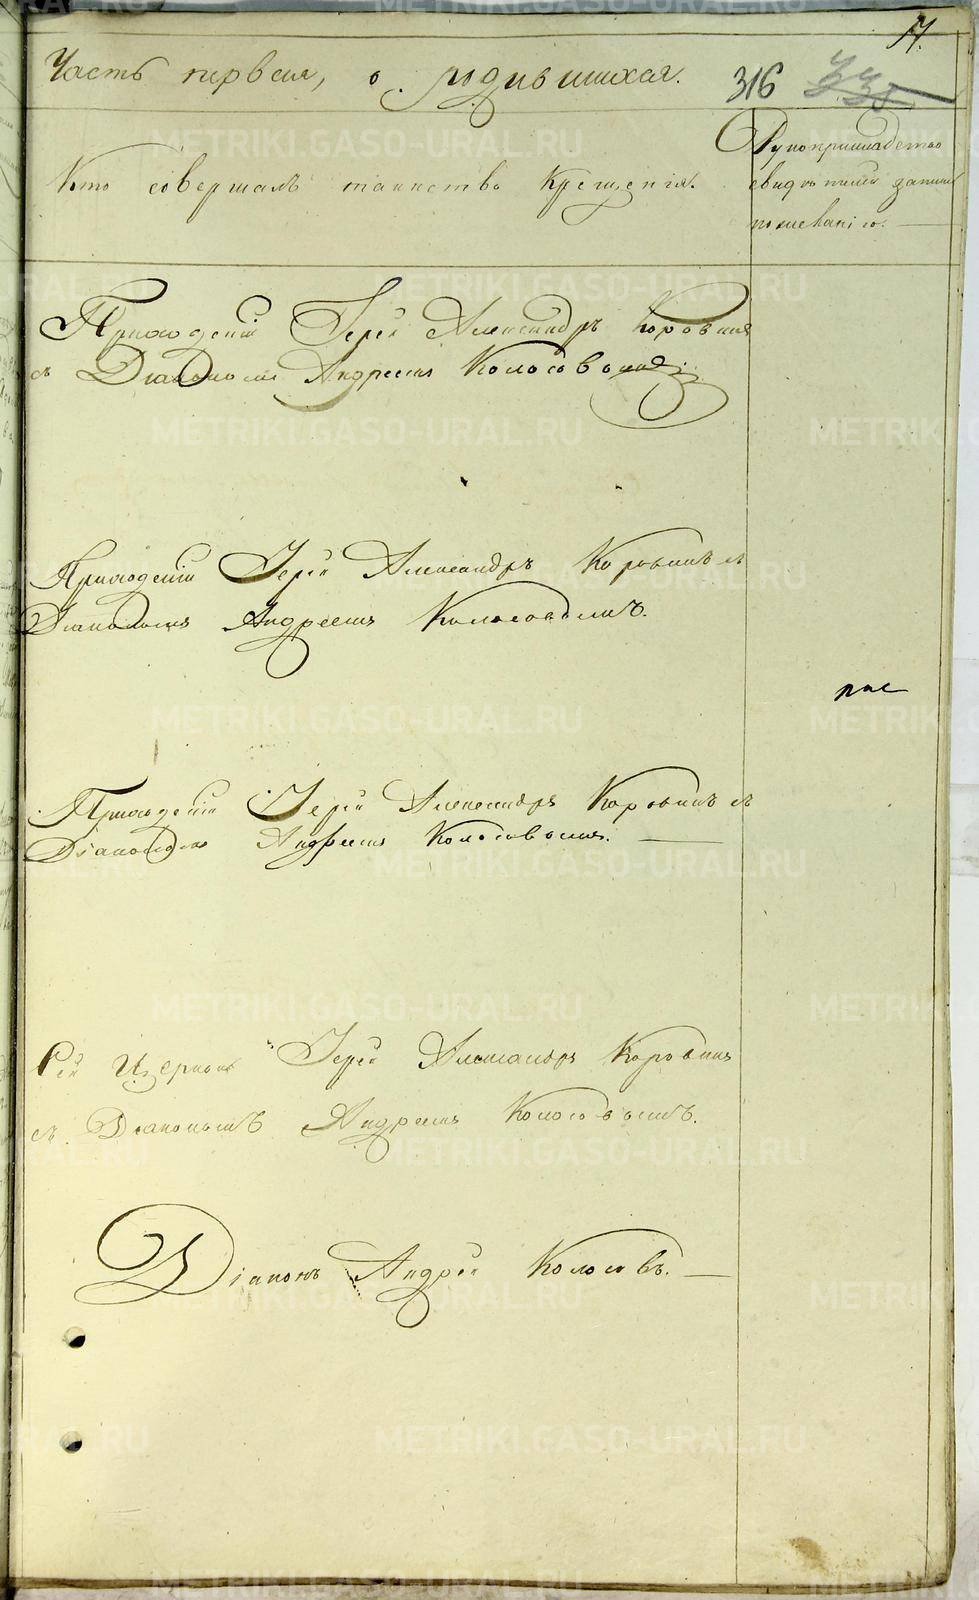 17.
Часть первая, о родившихся.
316
Кто совершалъ таинство крещенія.
Рукоприкладство
свидѣтелей записи
по желанію.
Приходскій Іерей Александръ Коровинъ
съ Діакономъ Андреемъ Колосовымъ.
Приходскій Іерей Александръ Коровинъ съ
Діакономъ Андреемъ Колосовымъ.
Приходскій Іерей Александръ Коровинъ съ
Діакономъ Андреемъ Колосовымъ.
Іерей Александръ Коровинъ
съ Діакономъ Андреемъ Колосовымъ.
Діаконъ Андрей Колосовъ.
METRIKI.GASO-URAL.RU